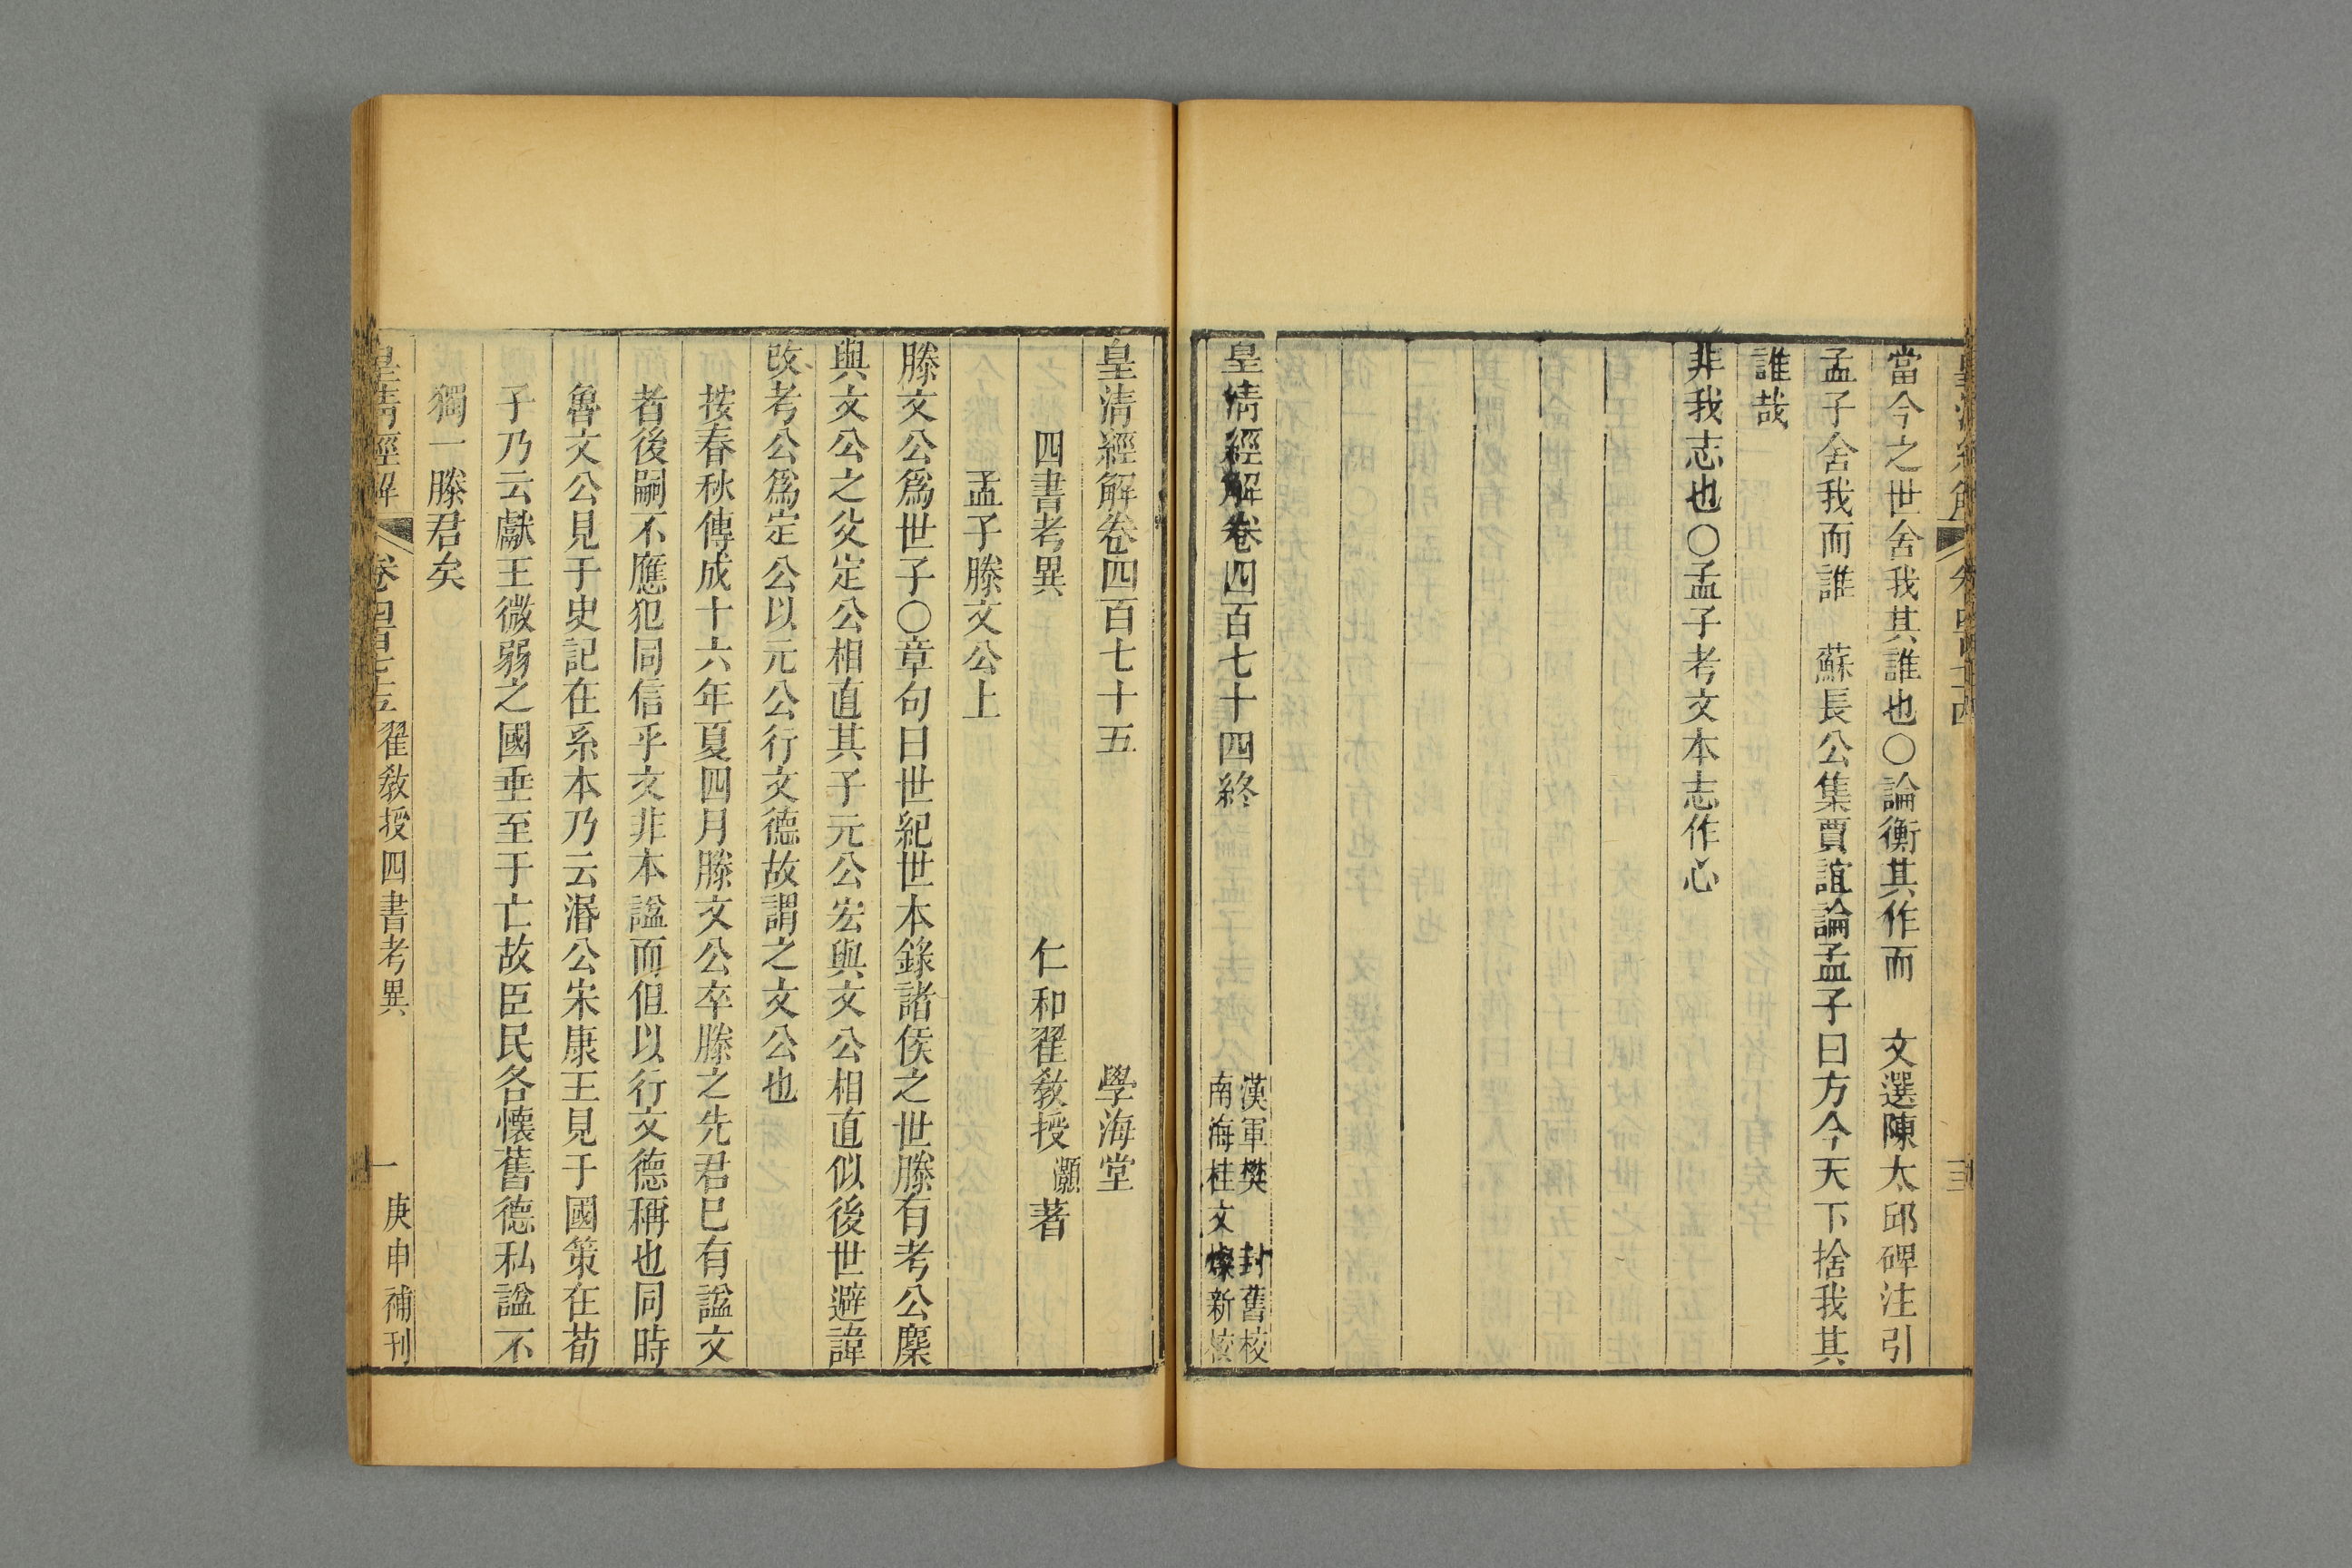 當今之世舍我其誰也〇論衡其作而　文選陳太邱碑注引
孟子舍我而誰　蘇長公集賈誼論孟子曰方今天下捨我其
誰哉
非我志也〇孟子考文本志作心
皇清經解卷四百七十四終
漢軍樊　封舊校
南海桂文燦新校
皇清經解卷四百七十五
學海堂
四書考異
仁和翟教授灝著
孟子滕文公上
滕文公爲世子〇章句曰世紀世本錄諸侯之世滕有考公麋
與文公之父定公相直其子元公宏與文公相直似後世避諱
改考公爲定公以元公行文德故謂之文公也
按春秋傳成十六年夏四月滕文公卒滕之先君已有諡文
者後嗣不應犯同信乎文非本諡而但以行文德稱也同時
魯文公見于史記在系本乃云湣公宋康王見于國策在荀
子乃云獻王微弱之國垂至于亡故臣民各懷舊德私諡不
獨一滕君矣
皇清經解
卷四百七十五
翟教授四書考異
一
庚申補刊